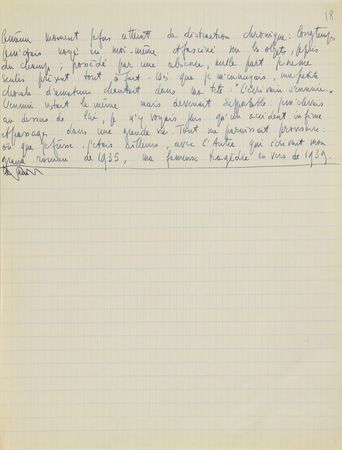 18
moment j'étais atteint de distraction chronique : longtemps,
j'étais en moi-même sur les objets,
du champ ; possédé par une absence, nulle part je ne me
sentis présent tout à fait. Dès que je m'ennuyais, une petite
chorale d'amateurs chantait dans ma tête : "L'écrivain s'ennuie".
L'ennui restait le même mais devenait supportable, j'm'élevais
au dessus de lui, je n'y voyais plus qu'un accident infime
et passager dans une grande vie. Tout me paraissait provisoire :
où que je fusse j'étais ailleurs, avec l'Autre qui écrivait mon
grand roman de 1935, ma fameuse tragédie en vers de 1939.